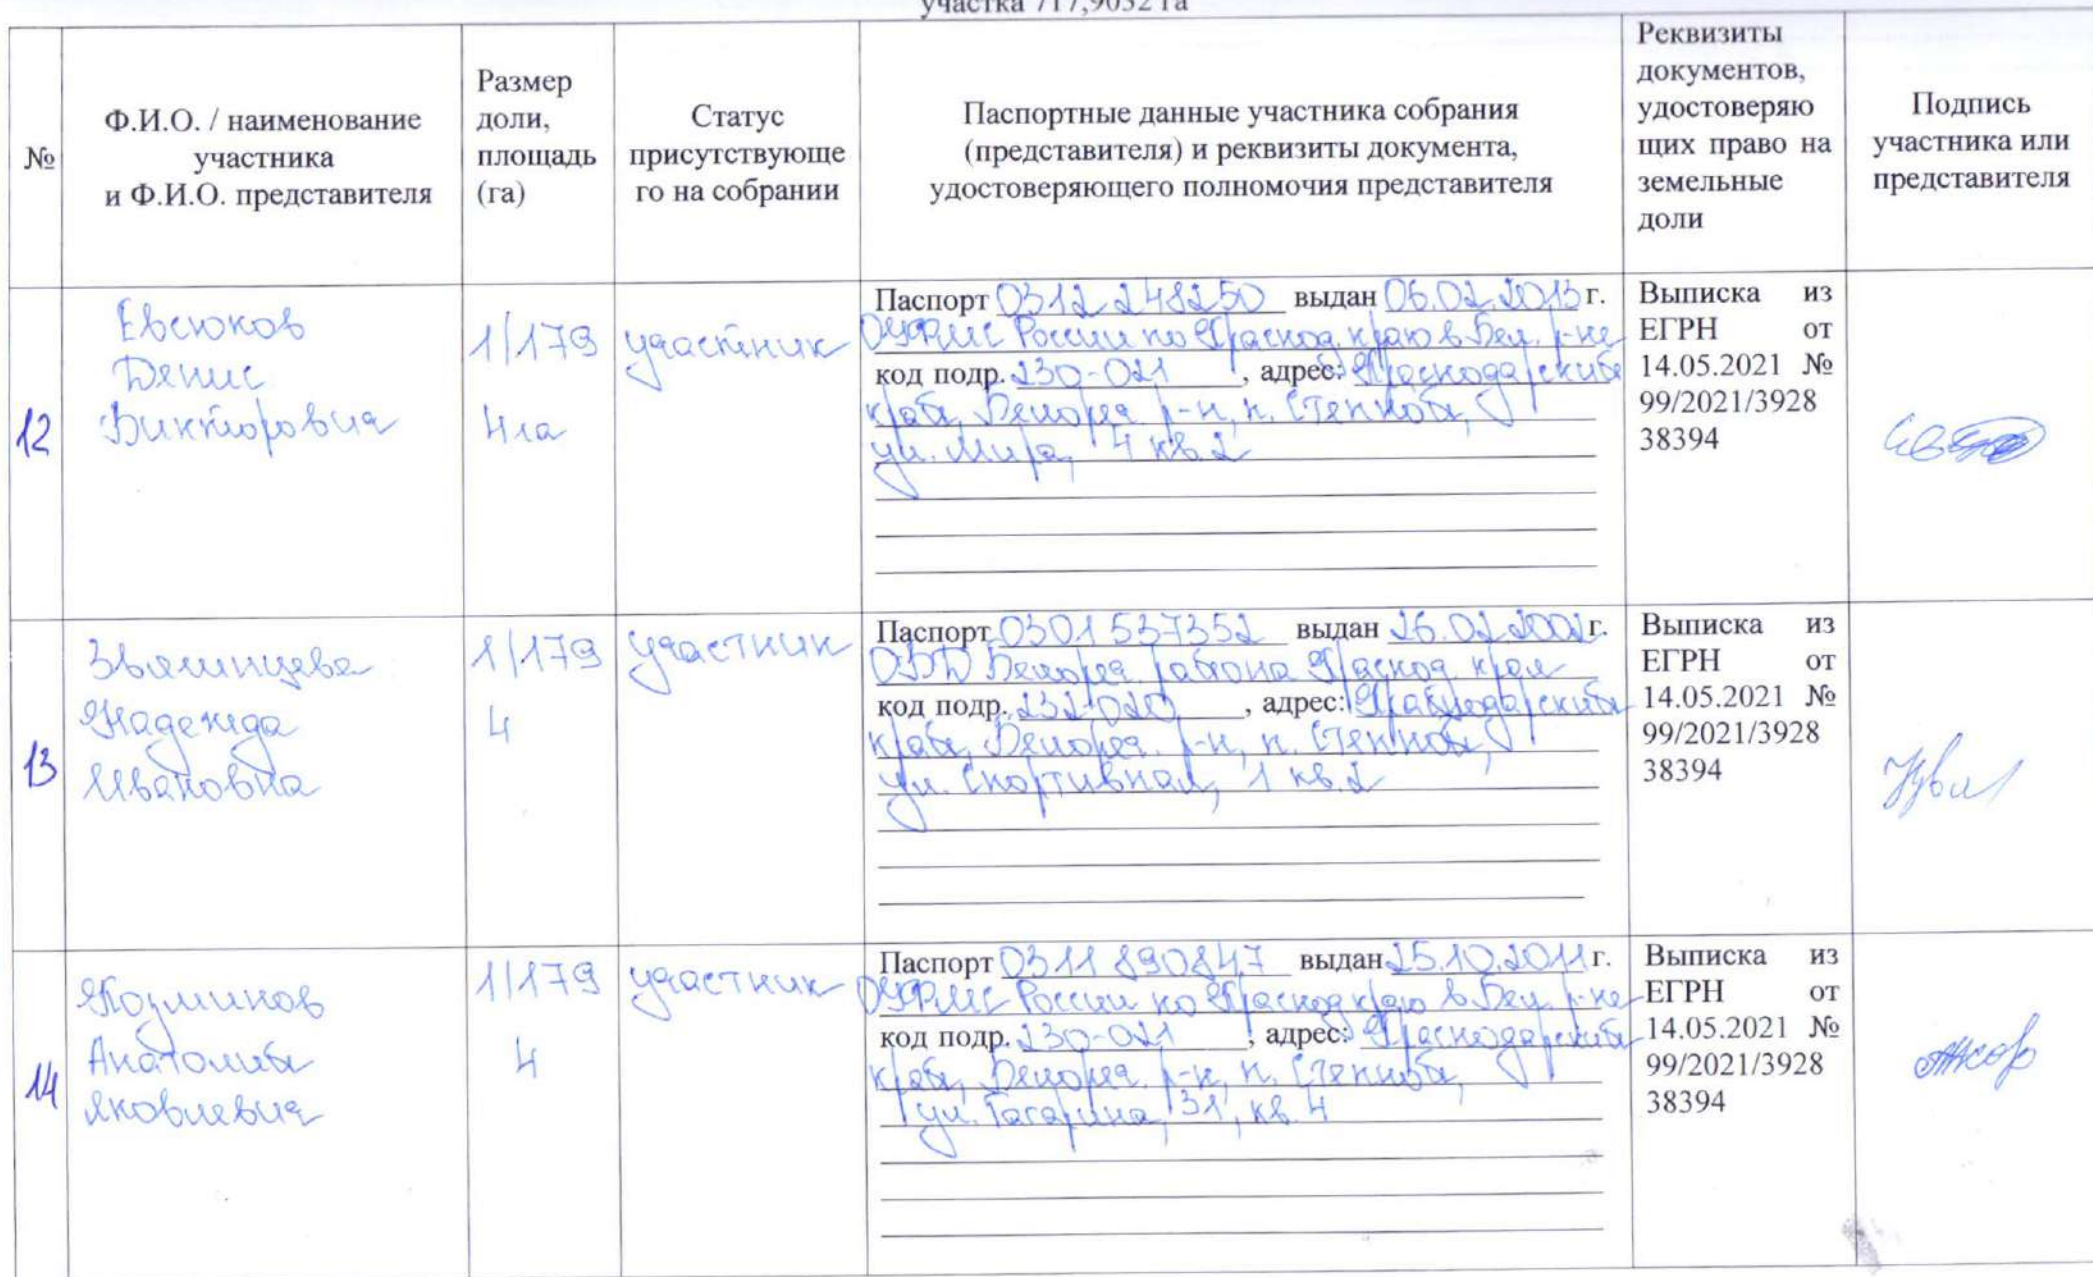 участка 717,9032 га
№
Ф.И.О. / наименование
участника
и Ф.И.О. представителя
Размер
доли,
площадь
(га)
Статус
присутствующе
го на собрании
Паспортные данные участника собрания
(представителя) и реквизиты документа,
удостоверяющего полномочия представителя
Реквизиты
документов,
удостоверяю
щих право на
земельные
доли
Подпись
участника или
представителя
12
Евсюков
Денис
Викторович
1/179
4 га
участник
Паспорт 0312 248250 выдан 06.02.2013 г.
ОУФМС России по Краснод. краю в Бел. р-не
код подр. 230-021, адрес: Краснодарский
край, Белореч. р-н, п. Степной,
ул. Мира, 4 кв. 2
Выписка из
ЕГРН от
14.05.2021 №
99/2021/3928
38394
13
Звягинцева
Надежда
Ивановна
1/179
4
участник
Паспорт 0301 537352 выдан 26.02.2002 г.
ОВД Белореч. района Краснод. края
код подр. 232-020, адрес: Краснодарский
край, Белореч. р-н, п. Степной,
ул. Спортивная, 1 кв. 2
Выписка из
ЕГРН от
14.05.2021 №
99/2021/3928
38394
14
Анатолий
Яковлевич
1/179
4
участник
Паспорт 0311 890847 выдан 25.10.2011 г.
ОУФМС России по Краснод краю в Бел. р-не
код подр. 230-021, адрес: Краснодарский
край, Белореч. р-н, п. Степной,
ул. Гагарина, 31, кв. 4
Выписка из
ЕГРН от
14.05.2021 №
99/2021/3928
38394